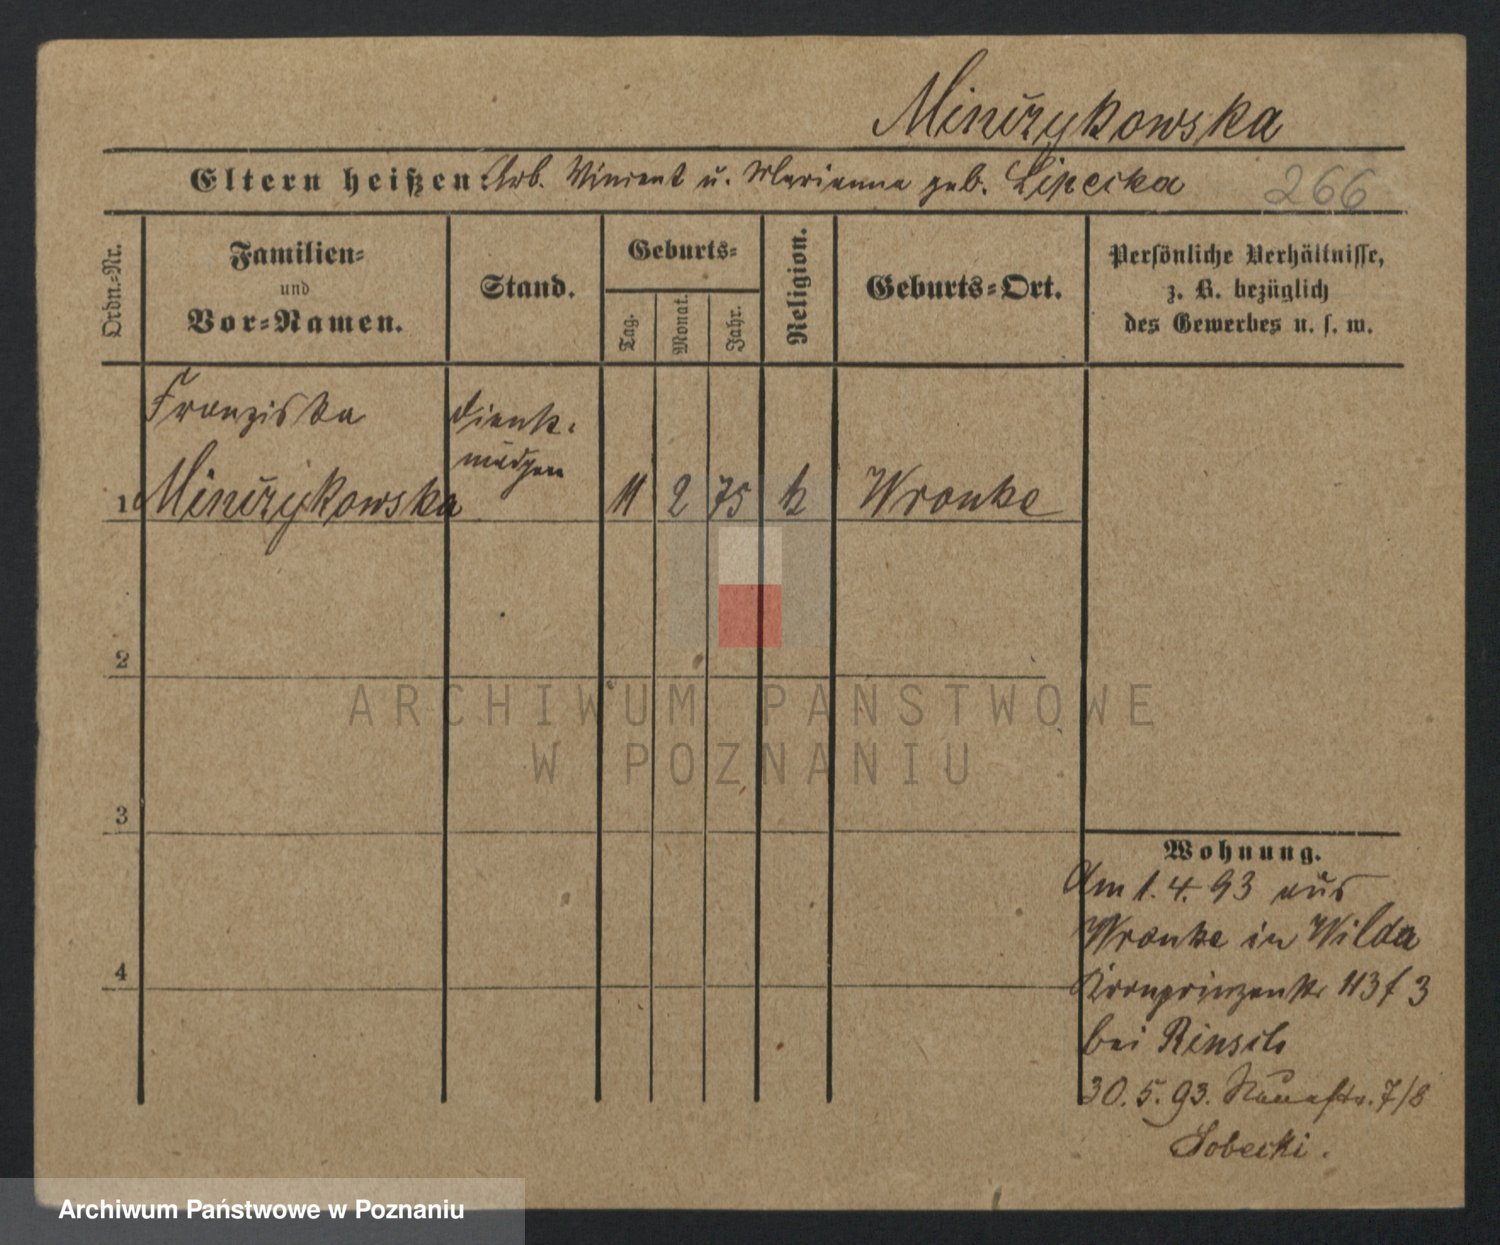 Minczykowska
Eltern heißen: Arb. Vincent u. Marianna geb. Lipecka
266
Ordn.-Nr.
Familien-
und
Vor-Namen.
Stand.
Geburts-
Tag.
Monat.
Jahr.
Religion.
Geburts-Ort.
Persönliche Verhältnisse,
z. B. bezüglich
des Gewerbes u. s. w.
Franziska
Dienst-
mädgen
1 Minczykowska 11 2 75 k Wronke
2
ARCHIWUM PAŃSTWOWE
W POZNANIU
3
Wohnung.
Am 1.4.93 aus
Wronke in Wilda
4
Kronprinzenstr 113f 3
bei Rinsch
30.5.93. 7/8
Sobecki.
Archiwum Państwowe w Poznaniu